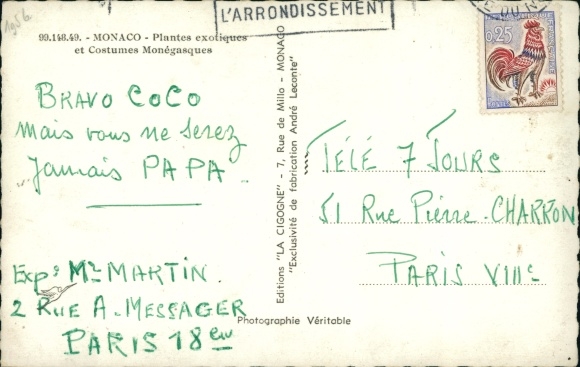 1956
L'ARRONDISSEMENT
0,25
99.148.49. - MONACO - Plantes exotiques
et Costumes Monégasques
BRAVO COCO
mais vous ne serez
Jamais PAPA
Exp: Mr MARTIN.
2 RUE A. MESSAGER
PARIS 18em
Editions "LA CIGOGNE" - 7, Rue de Millo - MONACO
"Exclusivité de fabrication André Leconte"
Photographie Véritable
TÉLÉ 7 JOURS
51 Rue Pierre CHARRON
PARIS VIIIe